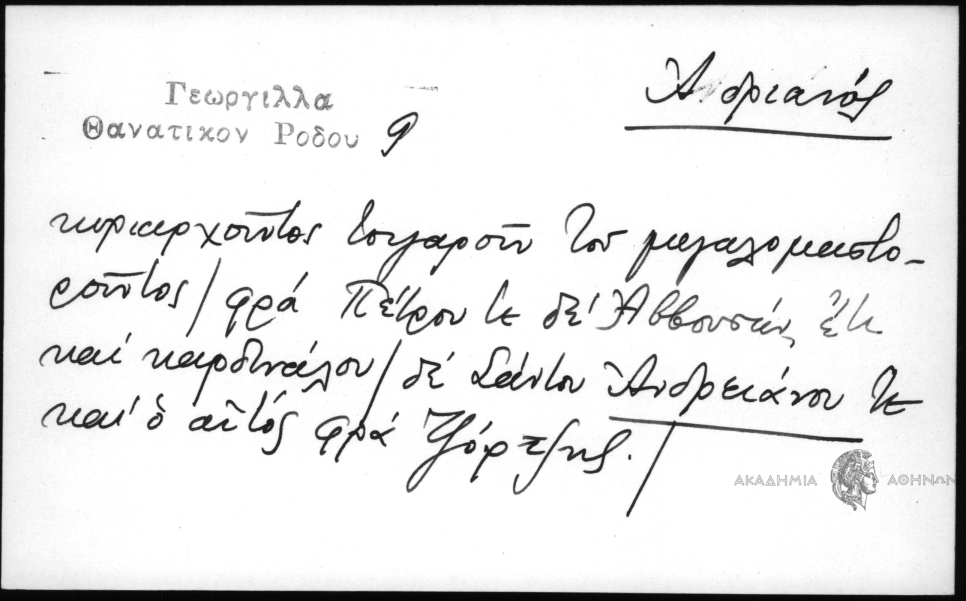 Γεωργιλλα
Θανατικον Ροδου 9
Ἀνδριανός
κυριαρχοῦντος τοῦ μεγαλομαστο-
ροῦντος / φρά Πέτρου τε δέ Ἀββουσάν, ἔτι
καί καρδινάλου / δέ Σάντου Ἀνδρειάνου τε
καί ὁ αὐτός φρά Τζόρτζης. /
ΑΚΑΔΗΜΙΑ ΑΘΗΝΩΝ